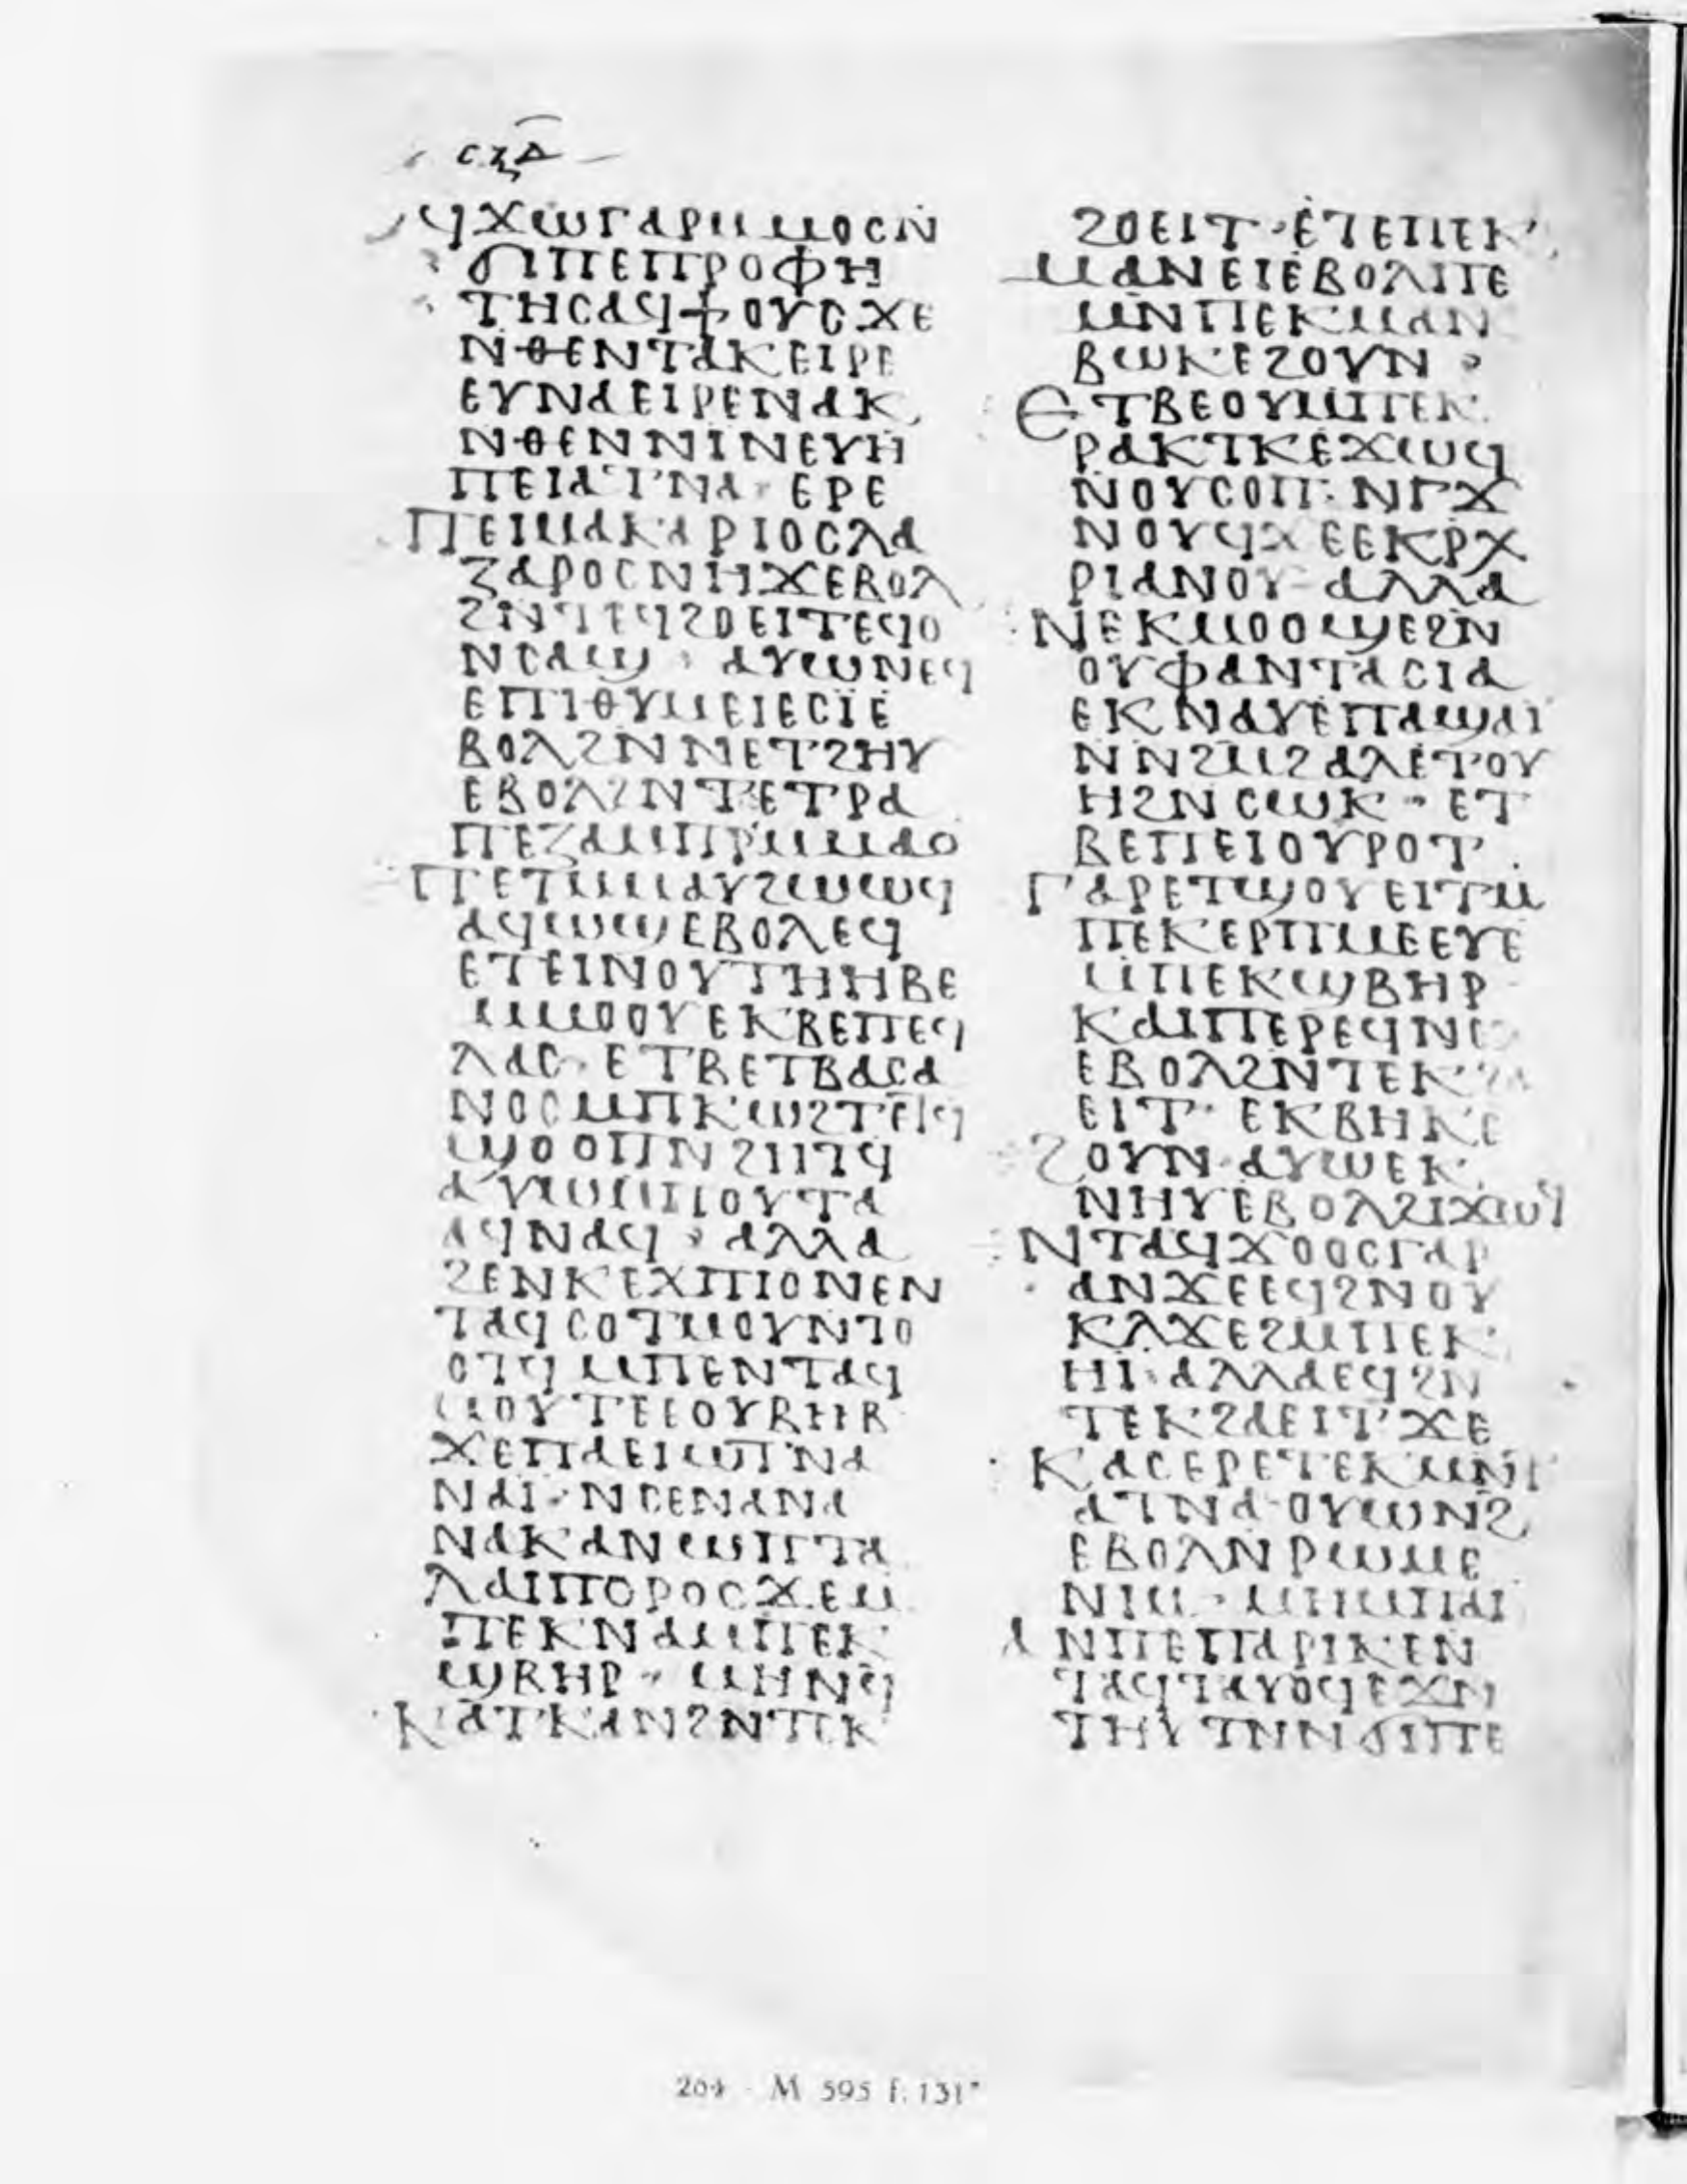 ⲥⲝⲇ
ϥϫⲱⲅⲁⲣⲙⲙⲟⲥⲛ
ϭⲓⲡⲉⲡⲣⲟⲫⲏ
ⲧⲏⲥⲁϥϯⲟⲩⲱϫⲉ
ⲛⲑⲉⲛⲧⲁⲕⲉⲓⲣⲉ
ⲉⲩⲛⲁⲉⲓⲣⲉⲛⲁⲕ
ⲛⲑⲉⲛⲛⲓⲛⲉⲩⲏ
ⲡⲉⲓⲁⲧⲛⲁ· ⲉⲣⲉ
ⲡⲉⲓⲙⲁⲕⲁⲣⲓⲟⲥⲗⲁ
ⲍⲁⲣⲟⲥⲛⲏϫⲉⲃⲟⲗ
ϩⲛⲧⲉϥϩⲟⲉⲓⲧⲉϥⲟ
ⲛⲥⲁϣ· ⲁⲩⲱⲛⲉϥ
ⲉⲡⲓⲑⲩⲙⲉⲓⲉⲥⲓⲉ
ⲃⲟⲗϩⲛⲛⲉⲧϩⲏⲩ
ⲉⲃⲟⲗϩⲛⲧⲉⲧⲣⲁ
ⲡⲉⲍⲁⲙⲡⲣⲙⲙⲁⲟ
ⲡⲉⲧⲙⲙⲁⲩϩⲱⲱϥ
ⲁϥⲱϣⲉⲃⲟⲗⲉϥ
ⲉⲧⲉⲓⲛⲟⲩⲧⲏⲏⲃⲉ
ⲙⲙⲟⲟⲩⲉⲕⲃⲉⲡⲉϥ
ⲗⲁⲥ· ⲉⲧⲃⲉⲧⲃⲁⲥⲁ
ⲛⲟⲥⲙⲡⲕⲱϩⲧⲉⲧϥ
ϣⲟⲟⲡⲛϩⲏⲧϥ
ⲁⲩⲱⲙⲡⲟⲩⲧⲁ
ⲁϥⲛⲁϥ· ⲁⲗⲗⲁ
ϩⲉⲛⲕⲉϫⲡⲓⲟⲛⲉⲛ
ⲧⲁϥⲥⲟⲧⲙⲟⲩⲛⲧⲟ
ⲟⲧϥⲙⲡⲉⲛⲧⲁϥ
ⲙⲟⲩⲧⲉⲉⲟⲩⲃⲏⲃ
ϫⲉⲡⲁⲉⲓⲱⲧⲛⲁ
ⲛⲁⲓ· ⲛⲥⲉⲛⲁⲛⲁ
ⲛⲁⲕⲁⲛⲱⲡⲧⲁ
ⲗⲁⲓⲡⲟⲣⲟⲥϫⲉⲙ
ⲡⲉⲕⲛⲁⲙⲡⲉⲕ
ϣⲃⲏⲣ· ⲙⲏⲛϥ
ⲕⲁⲧⲕⲁⲛϩⲛⲧⲉⲕ
ϩⲟⲉⲓⲧ· ⲉⲧⲉⲡⲉⲕ
ⲙⲁⲛⲉⲓⲉⲃⲟⲗⲡⲉ
ⲙⲛⲡⲉⲕⲙⲁⲛ
ⲃⲱⲕⲉϩⲟⲩⲛ·
ⲉⲧⲃⲉⲟⲩⲙⲡⲉⲕ
ⲣⲁⲕⲧⲕⲉϫⲱϥ
ⲛⲟⲩⲥⲟⲡ· ⲛⲅϫ
ⲛⲟⲩϥϫⲉⲉⲕⲣⲭ
ⲣⲓⲁⲛⲟⲩ· ⲁⲗⲗⲁ
ⲛⲉⲕⲙⲟⲟϣⲉϩⲛ
ⲟⲩⲫⲁⲛⲧⲁⲥⲓⲁ
ⲉⲕⲛⲁⲩⲉⲡⲁϣⲁⲓ
ⲛⲛϩⲙϩⲁⲗⲉⲧⲟⲩ
ⲏϩⲛⲥⲱⲕ· ⲉⲧ
ⲃⲉⲡⲉⲓⲟⲩⲣⲟⲧ
ⲅⲁⲣⲉⲧϣⲟⲩⲉⲓⲧⲙ
ⲡⲉⲕⲉⲣⲡⲙⲉⲉⲩⲉ
ⲙⲡⲉⲕϣⲃⲏⲣ
ⲕⲁⲓⲡⲉⲣⲉϥⲛⲉ
ⲉⲃⲟⲗϩⲛⲧⲉⲕϩⲁ
ⲉⲓⲧ· ⲉⲕⲃⲏⲕⲉ
ϩⲟⲩⲛ· ⲁⲩⲱⲉⲕ
ⲛⲏⲩⲉⲃⲟⲗϩⲓϫⲱϥ
ⲛⲧⲁϥϫⲟⲟⲥⲅⲁⲣ
ⲁⲛϫⲉⲉϥϩⲛⲟⲩ
ⲕⲗϫⲉϩⲙⲡⲉⲕ
ⲏⲓ· ⲁⲗⲗⲁⲉϥϩⲛ
ⲧⲉⲕϩⲁⲉⲓⲧ· ϫⲉ
ⲕⲁⲥⲉⲣⲉⲧⲉⲕⲙⲛⲧ
ⲁⲧⲛⲁ· ⲟⲩⲱⲛϩ
ⲉⲃⲟⲗⲛⲣⲱⲙⲉ
ⲛⲓⲙ· ⲙⲏⲙⲡⲁⲓ
ⲁⲛⲡⲉⲡⲁⲣⲓⲕⲉⲛ
ⲧⲁϥⲧⲁⲩⲟϥⲉϫⲛ
ⲧⲏⲩⲧⲛⲛϭⲓⲡⲉ
204 · M 595 f. 131ᵛ